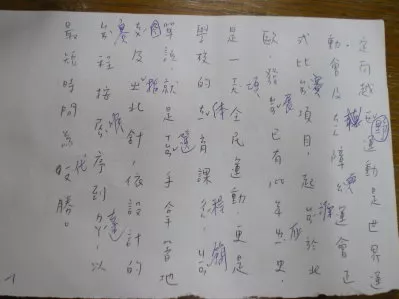 定向越野運動是世界運
動會及聽障奧運會正
式比賽項目,起源於北
歐,發展已有年史,
是一項全民運動,更是
學校的體育課程,簡
單說,就是選手拿著地
圖及指北針,依設計的
賽程按順序到達,以
最短時間為勝。